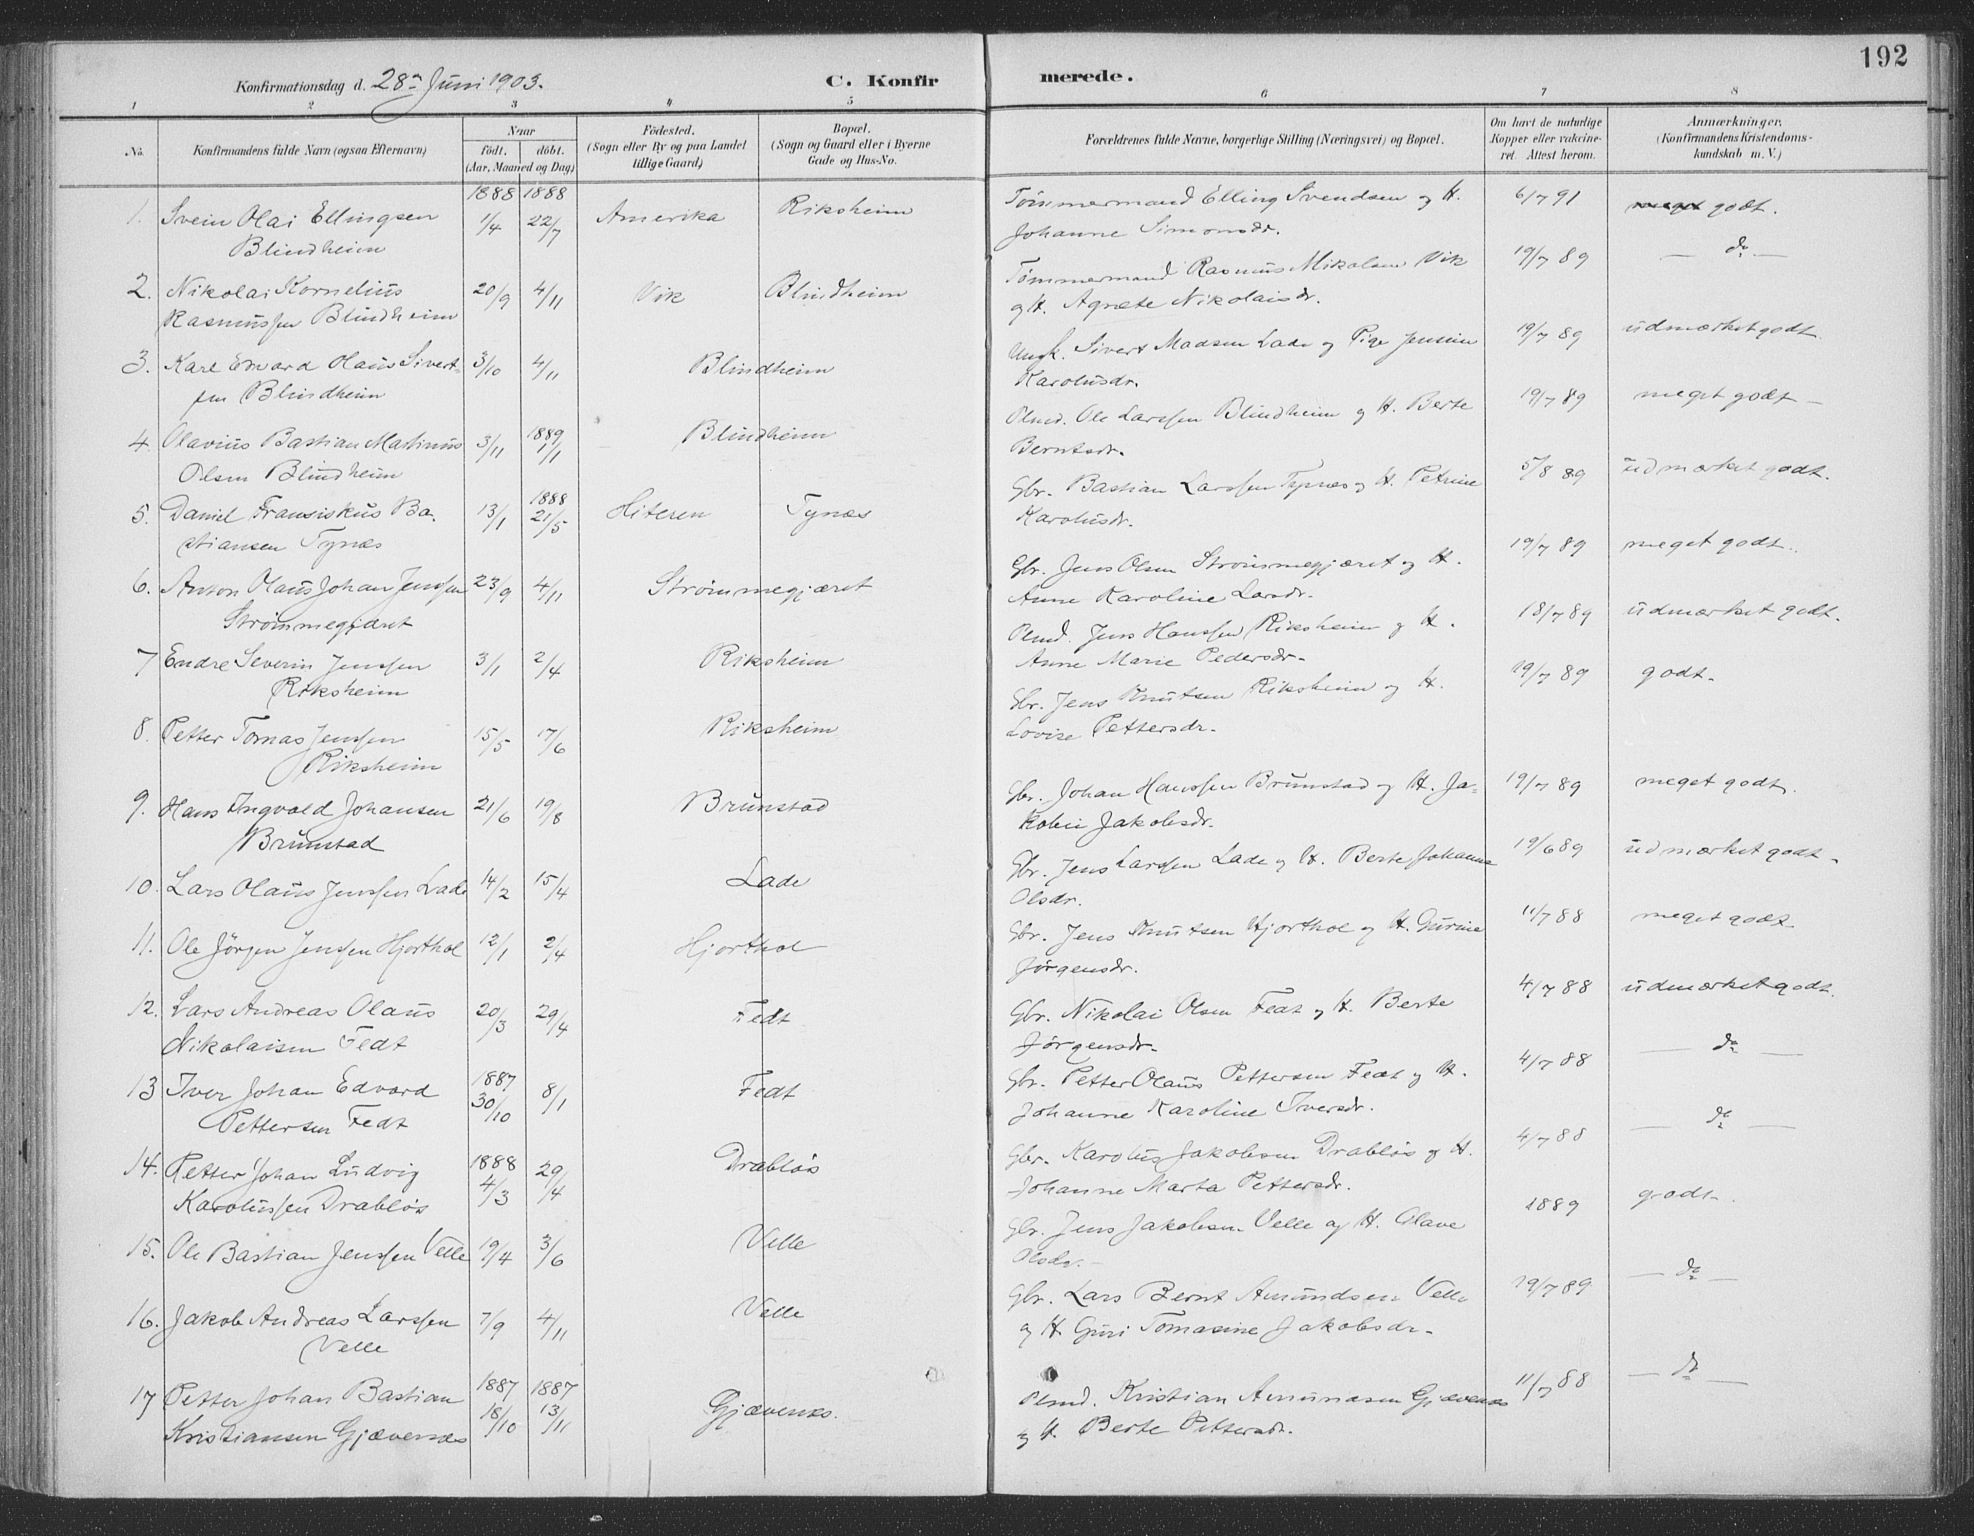 192
Konfirmationsdag d. 28de Juni 1903.
C. Konfirmerede.
1 2 3 4 5 6 7 8
No.
Konfirmandens fulde Navn (ogsaa Efternavn)
Naar
födt. döbt.
(Aar, Maaned og Dag)
Födested.
(Sogn eller By og paa Landet
tillige Gaard)
Bopæl.
(Sogn og Gaard eller i Byerne
Gade og Hus-No.
Forældrenes fulde Navne, borgerlige Stilling (Næringsvei) og Bopæl.
Om havt de naturlige
Kopper eller vakcine-
ret. Attest herom.
Anmærkninger.
(Konfirmandens Kristendoms-
kundskab m. V.)
1888 1888
1. Svein Olai Ellingsen 1/4 22/7 Amerika Riksheim Tømmermand Elling Svendsen og H. 6/7 91 meget godt.
Blindheim Johanne Simonsdr.
2. Nikolai Kornelius 20/9 4/11 Vik Blindheim Tømmermand Rasmus Nikolsen Vik 19/7 89 — do —
Rasmussen Blindheim og H. Agnete Nikolaisdr.
3. Karl Edvard Olaus Sivert- 3/10 4/11 Blindheim Ungk. Sivert Madsen Lade og Pige Jensine 19/7 89 udmærket godt.
sen Blindheim Karolusdr.
1889
4. Olavius Bastian Martinus 3/11 1/1 Blindheim Plmd. Ole Larssen Blindheim og H. Berte 19/7 89 meget godt —
Olsen Blindheim Berntsdr.
1888
5. Daniel Fransiskus Ba- 13/1 21/5 Hiteren Tynæs Gbr. Bastian Larssen Tynæs og H. Petrine 5/8 89 udmærket godt.
stiansen Tynæs Karolusdr.
6. Anton Olaus Johan Jenssen 23/9 4/11 Strømmegjæret Gbr. Jens Olsen Strømmegjæret og H. 19/7 89 meget godt..
Strømmegjæret Anne Karoline Larsdr.
7 Endre Severin Jenssen 3/1 2/4 Riksheim Plmd. Jens Hanssen Riksheim og H. 18/7 89 udmærket godt.
Riksheim Anne Marie Pedersdr.
8. Petter Tomas Jenssen 15/5 17/6 Riksheim Gbr. Jens Knutsen Riksheim og H. 19/7 89 godt.
Riksheim Lovise Pettersdr.
9. Hans Ingvald Johansen 21/6 19/8 Brunstad Gbr. Johan Hanssen Brunstad og H. Ja- 19/7 89 meget godt.
Brunstad kobie Jakobsdr.
10. Lars Olaus Jenssen Lade 14/2 15/4 Lade Gbr. Jens Larssen Lade og H. Berte Johanna 19/6 89 udmærket godt.
Olsdr.
11. Ole Jørgen Jenssen Hjorthol 12/1 2/4 Hjorthol Gbr. Jens Knutsen Hjorthol og H. Gurine 11/7 88 meget godt
Jørgensdr.
12. Lars Andreas Olaus 20/3 29/4 Fedt Gbr. Nikolai Olsen Fedt og H. Berte 4/7 88 udmærket godt.
Nikolaisen Fedt Jørgensdr.
1887
13 Iver Johan Edvard 30/10 8/1 Fedt Gbr. Petter Olaus Pettersen Fedt og H. 4/7 88 — do —
Pettersen Fedt Johanne Karoline Iversdr.
1888
14. Petter Johan Ludvig 4/3 29/4 Drabløs Gbr. Karolus Jakobsen Drabløs og H. 4/7 88 — do —
Karolussen Drabløs Johanne Marta Pettersdr.
15. Ole Bastian Jenssen Velle 19/4 3/6 Velle Gbr. Jens Jakobsen Velle og H. Olave 1889 godt.
Olsdr.
16. Jakob Andreas Larssen 7/9 4/11 Velle Gbr. Lars Bernt Amundsen Velle 19/7 89 — do —
Velle og H. Guri Tomasine Jakobsdr.
1887 1887
17 Petter Johan Bastian 18/10 13/11 Gjævenes. Plmd. Kristian Amundsen Gjævenes 11/7 88 — do —
Kristiansen Gjævenes og H. Berte Pettersdr.